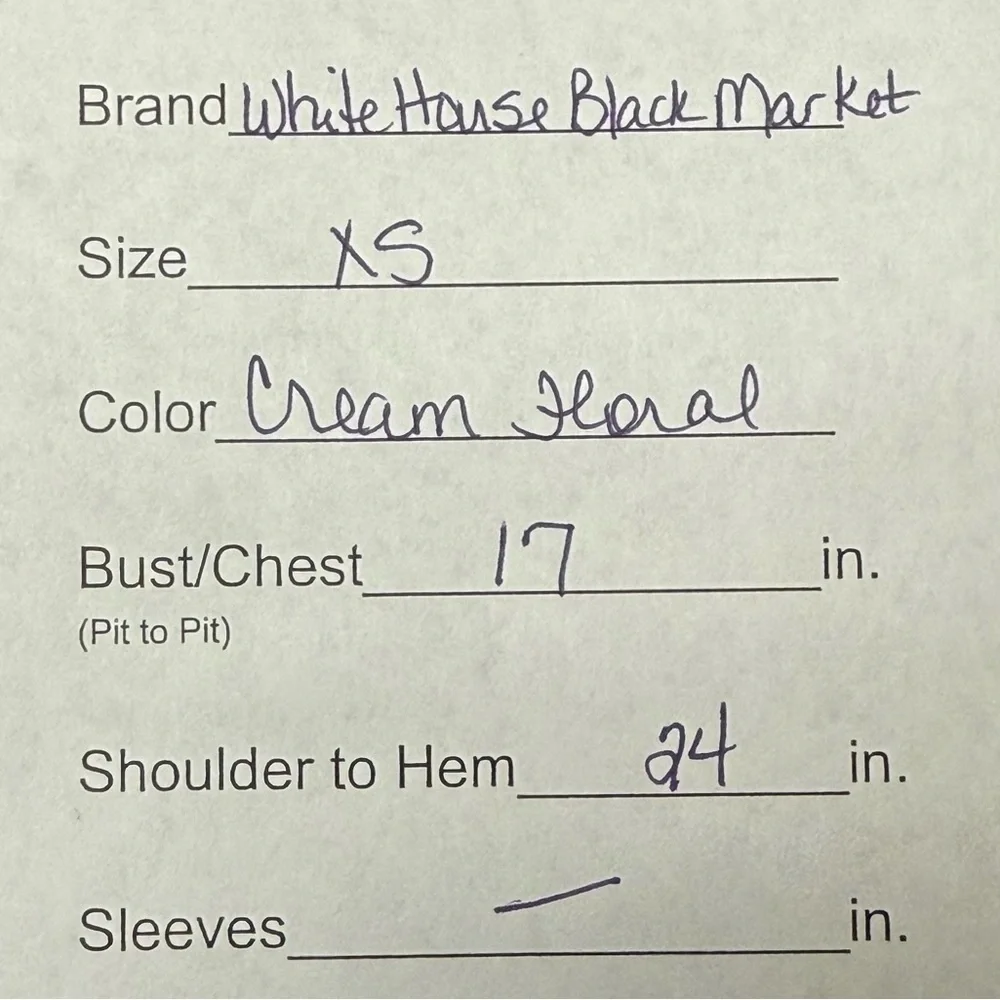 Brand White House Black Market
Size XS
Color Cream Floral
Bust/Chest 17 in.
(Pit to Pit)
Shoulder to Hem 24 in.
Sleeves — in.